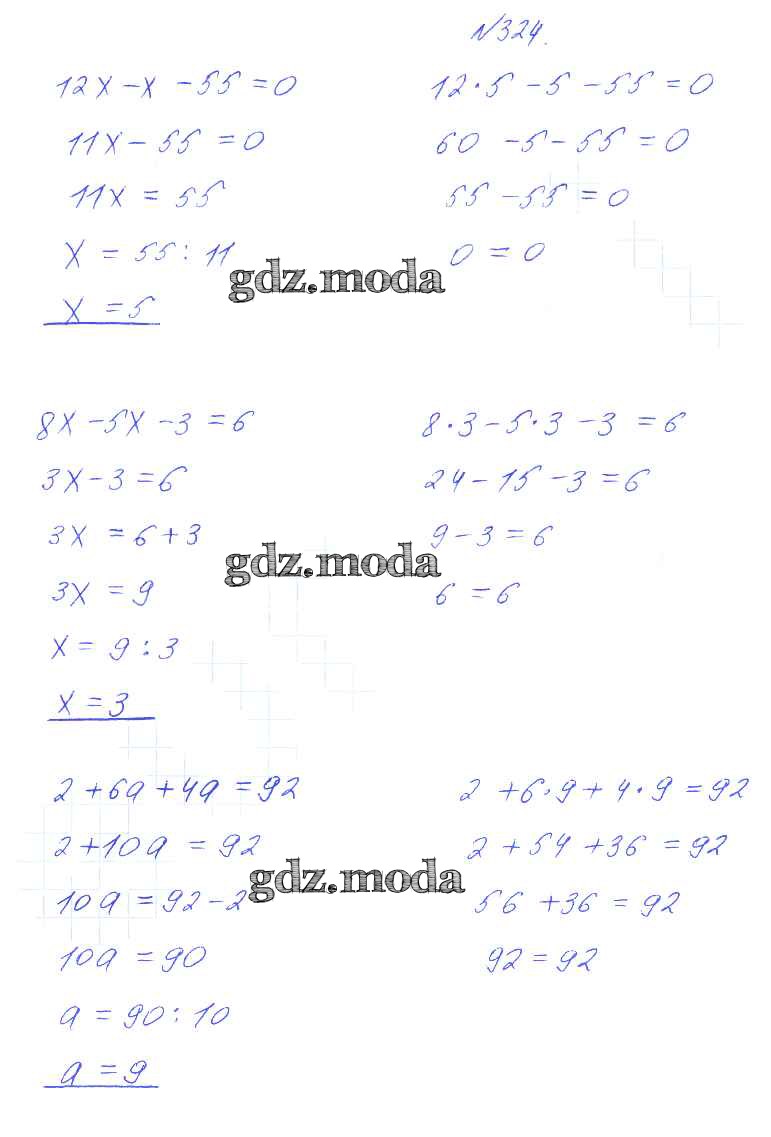 №324.
12x - x - 55 = 0
11x - 55 = 0
11x = 55
x = 55 : 11
x = 5
12 · 5 - 5 - 55 = 0
60 - 5 - 55 = 0
55 - 55 = 0
0 = 0
gdz.moda
8x - 5x - 3 = 6
3x - 3 = 6
3x = 6 + 3
3x = 9
x = 9 : 3
x = 3
8 · 3 - 5 · 3 - 3 = 6
24 - 15 - 3 = 6
9 - 3 = 6
6 = 6
gdz.moda
2 + 6a + 4a = 92
2 + 10a = 92
10a = 92 - 2
10a = 90
a = 90 : 10
a = 9
2 + 6 · 9 + 4 · 9 = 92
2 + 54 + 36 = 92
56 + 36 = 92
92 = 92
gdz.moda